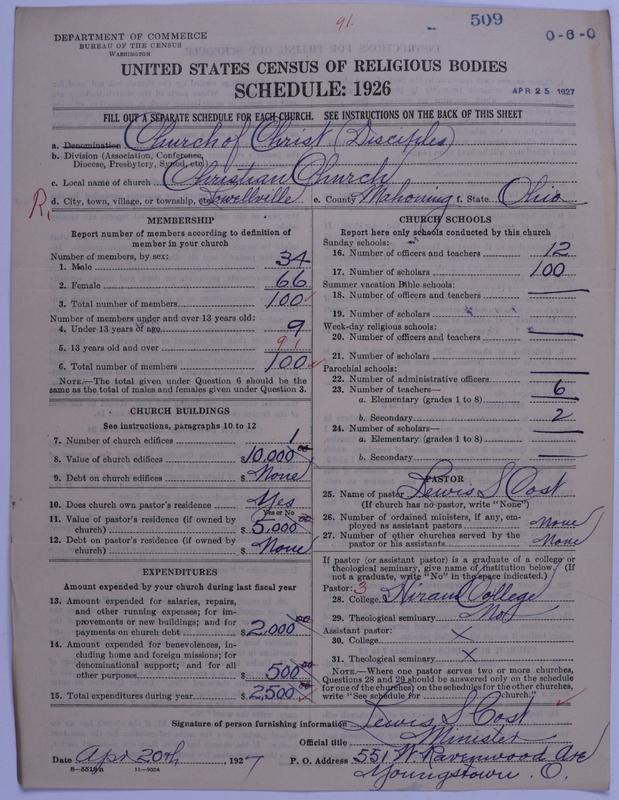 91.
509
0-6-0
DEPARTMENT OF COMMERCE
BUREAU OF THE CENSUS
WASHINGTON
UNITED STATES CENSUS OF RELIGIOUS BODIES
SCHEDULE: 1926
APR 25 1927
FILL OUT A SEPARATE SCHEDULE FOR EACH CHURCH. SEE INSTRUCTIONS ON THE BACK OF THIS SHEET
a. Denomination Church of Christ (Disciples)
b. Division (Association, Conference, Diocese, Presbytery, Synod, etc.)
c. Local name of church Christian Church
R. d. City, town, village, or township, etc. Lowellville e. County Mahoning f. State Ohio
MEMBERSHIP
Report number of members according to definition of
member in your church
Number of members, by sex:
1. Male 34
2. Female 66
3. Total number of members 100
Number of members under and over 13 years old:
4. Under 13 years of age 9
5. 13 years old and over 91
6. Total number of members 100
NOTE.—The total given under Question 6 should be the
same as the total of males and females given under Question 3.
CHURCH BUILDINGS
See instructions, paragraphs 10 to 12
7. Number of church edifices 1
8. Value of church edifices $10,000.00
9. Debt on church edifices $None
10. Does church own pastor's residence Yes
Yes or No
11. Value of pastor's residence (if owned by
church) $5,000.00
12. Debt on pastor's residence (if owned by
church) $None
EXPENDITURES
Amount expended by your church during last fiscal year
13. Amount expended for salaries, repairs,
and other running expenses; for im-
provements or new buildings; and for
payments on church debt $2,000.00
14. Amount expended for benevolences, in-
cluding home and foreign missions; for
denominational support; and for all
other purposes $500.00
15. Total expenditures during year $2,500.00
CHURCH SCHOOLS
Report here only schools conducted by this church
Sunday schools:
16. Number of officers and teachers 12
17. Number of scholars 100
Summer vacation Bible schools:
18. Number of officers and teachers
19. Number of scholars
Week-day religious schools:
20. Number of officers and teachers
21. Number of scholars
Parochial schools:
22. Number of administrative officers
23. Number of teachers—
a. Elementary (grades 1 to 8) 6
b. Secondary 2
24. Number of scholars—
a. Elementary (grades 1 to 8)
b. Secondary
PASTOR
25. Name of pastor Lewis S Cost
(If church has no pastor, write "None")
26. Number of ordained ministers, if any, em-
ployed as assistant pastors None
27. Number of other churches served by the
pastor or his assistants None
If pastor (or assistant pastor) is a graduate of a college or
theological seminary, give name of institution below. (If
not a graduate, write "No" in the space indicated.)
Pastor: 3
28. College Hiram College
29. Theological seminary No
Assistant pastor:
30. College X
31. Theological seminary X
NOTE.—Where one pastor serves two or more churches,
Questions 28 and 29 should be answered only on the schedule
for one of the churches; on the schedules for the other churches,
write "See schedule for church."
Signature of person furnishing information Lewis S Cost
Official title Minister
Date Apr 20th, 1927 P. O. Address 551 W. Ravenwood Ave
Youngstown, O.
8-5518a 11-9024